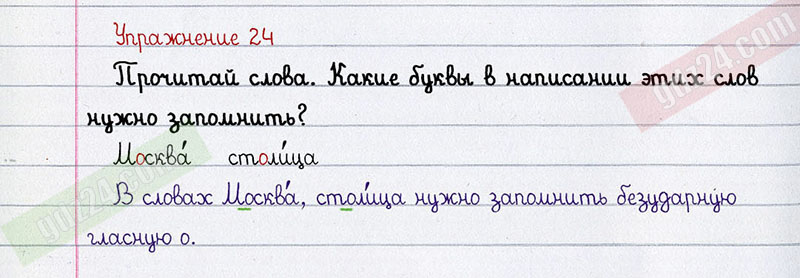 Упражнение 24
Прочитай слова. Какие буквы в написании этих слов
нужно запомнить?
Москва́ столи́ца
В словах Москва́, столи́ца нужно запомнить безударную
гласную о.
gdz24.com
gdz24.com